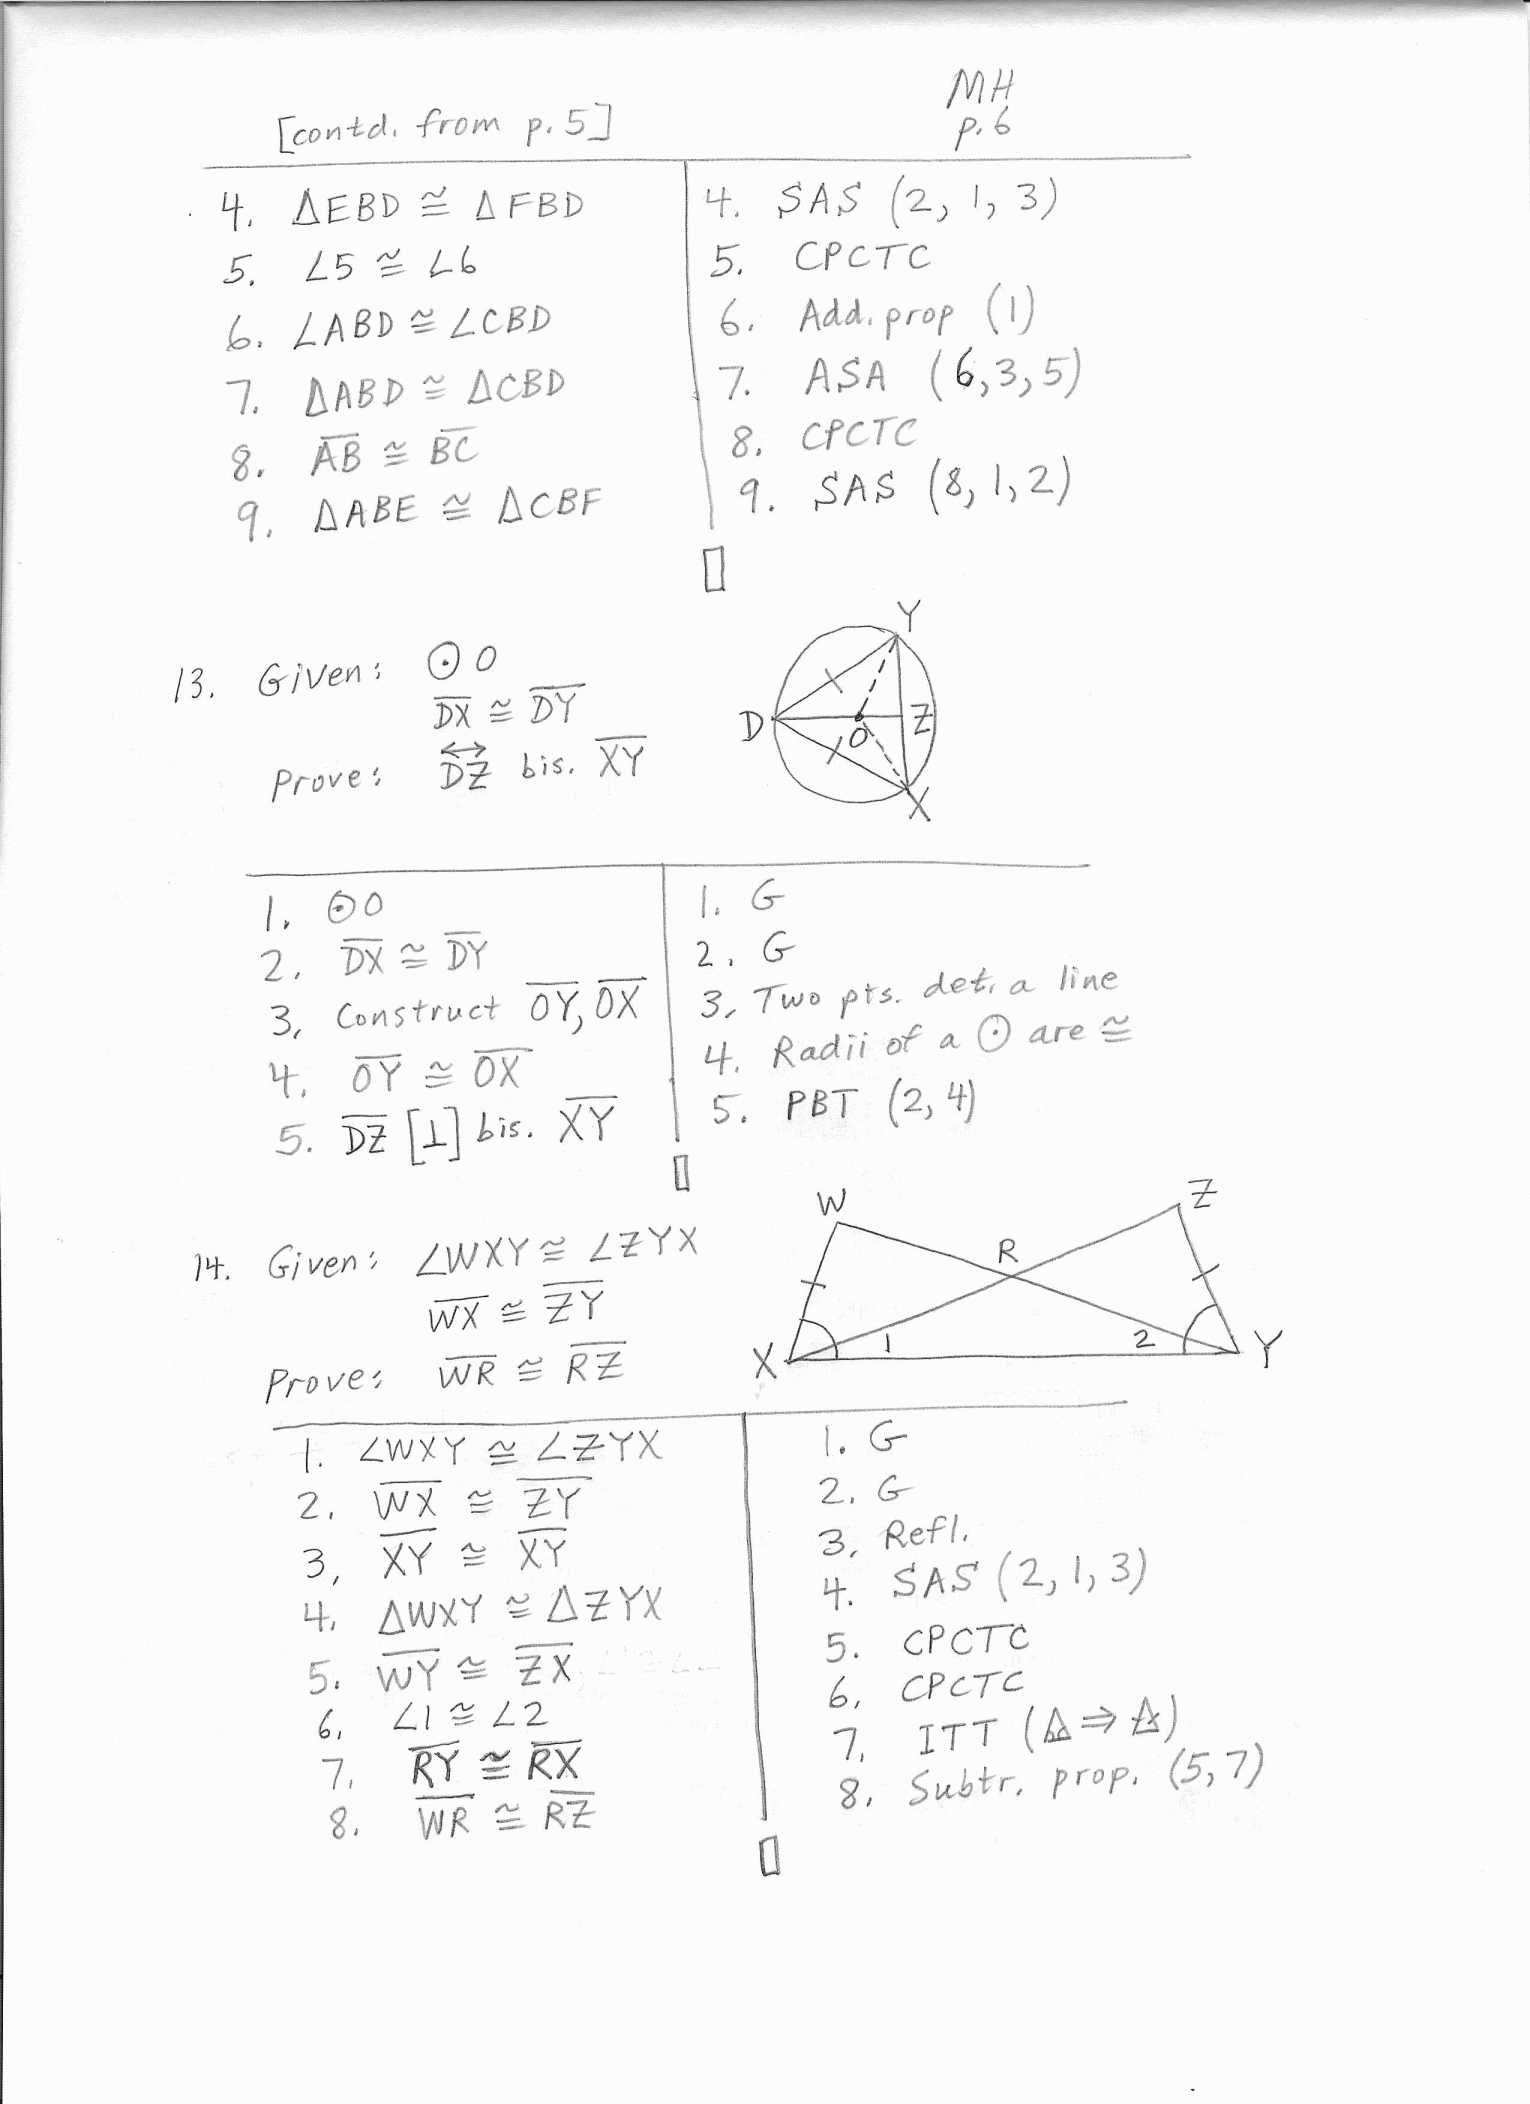 MH
[contd. from p. 5] p. 6
4. △EBD ≅ △FBD 4. SAS (2, 1, 3)
5. ∠5 ≅ ∠6 5. CPCTC
6. ∠ABD ≅ ∠CBD 6. Add. prop (1)
7. △ABD ≅ △CBD 7. ASA (6, 3, 5)
8. A̅B̅ ≅ B̅C̅ 8. CPCTC
9. △ABE ≅ △CBF 9. SAS (8, 1, 2)
13. Given: ⊙ O
D̅X̅ ≅ D̅Y̅
Prove: D⃡Z bis. X̅Y̅
Y
D O Z
X
1. ⊙O 1. G
2. D̅X̅ ≅ D̅Y̅ 2. G
3. Construct O̅Y̅, O̅X̅ 3. Two pts. det. a line
4. O̅Y̅ ≅ O̅X̅ 4. Radii of a ⊙ are ≅
5. D̅Z̅ [⊥] bis. X̅Y̅ 5. PBT (2, 4)
14. Given: ∠WXY ≅ ∠ZYX
W̅X̅ ≅ Z̅Y̅
Prove: W̅R̅ ≅ R̅Z̅
W Z
R
X 1 2 Y
1. ∠WXY ≅ ∠ZYX 1. G
2. W̅X̅ ≅ Z̅Y̅ 2. G
3. X̅Y̅ ≅ X̅Y̅ 3. Refl.
4. △WXY ≅ △ZYX 4. SAS (2, 1, 3)
5. W̅Y̅ ≅ Z̅X̅ 5. CPCTC
6. ∠1 ≅ ∠2 6. CPCTC
7. R̅Y̅ ≅ R̅X̅ 7. ITT (△ ⇒ △)
8. W̅R̅ ≅ R̅Z̅ 8. Subtr. prop. (5, 7)